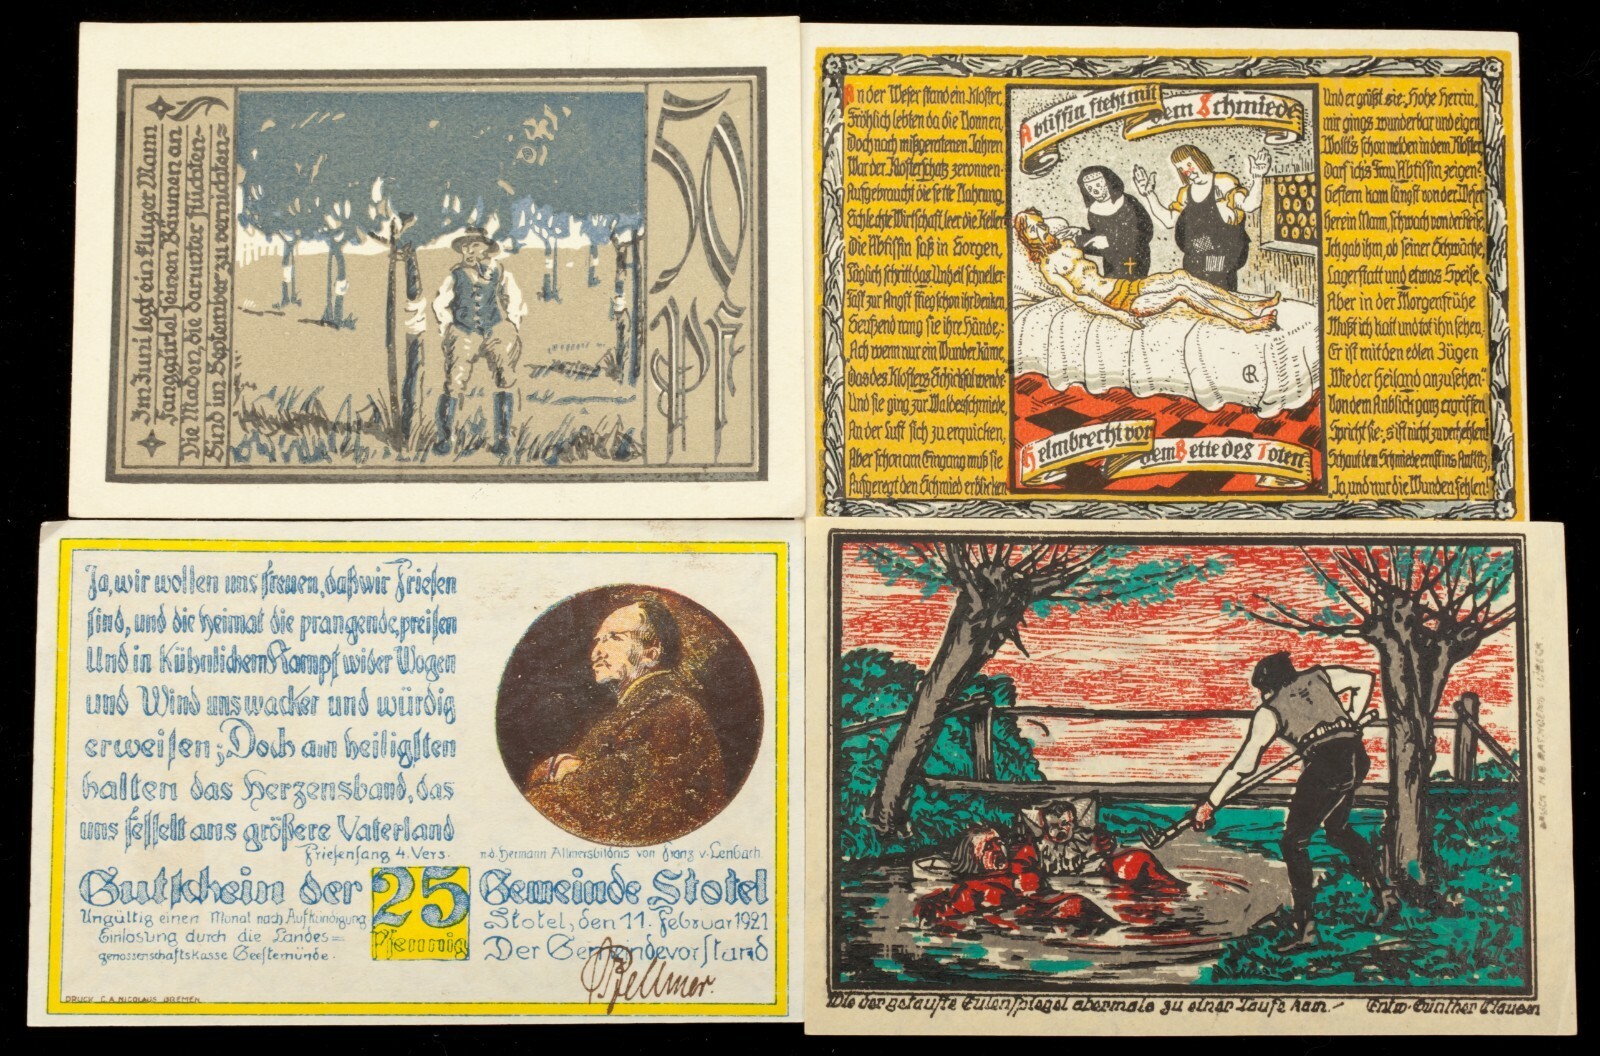 Im Juni legt ein kluger Mann
Fanggürtel seinen Bäumen an
Die Maden, die darunter flüchten-
Sind im September zu vernichten-
50
Pf
An der Weser stand ein Kloster,
Fröhlich lebten da die Nonnen,
Doch nach mißgeratenen Jahren
War der Klosterschatz zeronnen-
Aufgebraucht die fette Nahrung,
Schlechte Wirtschaft, leer die Keller
die Abtissin saß in Sorgen,
Täglich schritt das Unheil schneller-
Fast zur Angst stieg schon ihr Denken,
Seufzend rang sie ihre Hände,:
Ach wenn nur ein Wunder käme,
Das des Klosters Schicksal wende-
Und sie ging zur Waldesschmiede,
An der Luft sich zu erquicken,
Aber schon am Eingang muß sie
Aufgeregt den Schmied erblicken
Abtissin steht mit
dem Schmiede
CR
Helmbrecht vor
dem Bette des Toten
Und er grüßt sie:, Hohe Herrin,
mir gings wunderbar und eigen
Wollt's schon melden in dem Kloster
Darf ichs Frau Abtissin zeigen-
Gestern kam längst von der Weser
Herein Mann, schwach von der Reise,
Ich gab ihm, ob seiner Schwäche,
Lagerstatt und etwas Speise,
Aber in der Morgenfrühe
Mußt ich kalt und tot ihn sehen,
Er ist mit den edlen Zügen
Wie der Heiland anzusehen-"
Von dem Anblick ganz ergriffen
Spricht sie:, s'ist nicht zu verhehlen!
Schaut dem Schmiede ernst ins Antlitz,
Ja, und nur die Wunden fehlen!
Ja, wir wollen uns freuen, daß wir Friesen
sind, und die Heimat die prangende, preisen
Und in kühnlichem Kampf wider Wogen
und Wind uns wacker und würdig
erweisen; Doch am heiligsten
halten das Herzensband, das
uns fesselt ans größere Vaterland
Friesensang 4. Vers.
n.d. Hermann Allmersbildnis von Franz v. Lenbach
Gutschein der 25 Gemeinde Stotel
Pfennig
Ungültig einen Monat nach Aufkündigung
Einlösung durch die Landes=
genossenschaftskasse Geestemünde.
Stotel, den 11. Februar 1921
Der Gemeindevorstand
DRUCK C. A. NICOLAUS BREMEN
Wie der getaufte Eulenspiegel abermals zu einer Taufe kam.-
Entw. Günther Clausen
DRUCK H.G. RAHTGENS LÜBECK